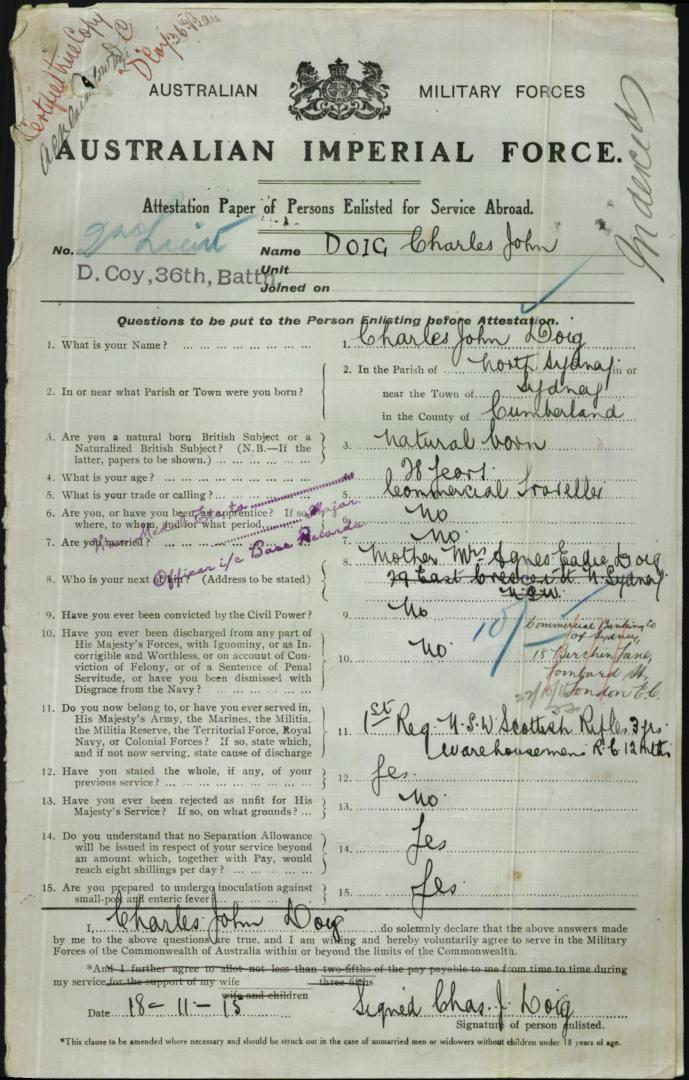 Certified true Copy
D Coy 36th Batt
Indexed
AUSTRALIAN MILITARY FORCES
AUSTRALIAN IMPERIAL FORCE.
Attestation Paper of Persons Enlisted for Service Abroad.
No. 2nd Lieut Name DOIG Charles John
D. Coy, 36th, Battn Unit
Joined on
Questions to be put to the Person Enlisting before Attestation.
1. What is your Name? ... 1. Charles John Doig
2. In or near what Parish or Town were you born? 2. In the Parish of North Sydney in or
near the Town of Sydney
in the County of Cumberland
3. Are you a natural born British Subject or a
Naturalized British Subject? (N.B.—If the
latter, papers to be shown.) ... 3. natural born
4. What is your age? ... 28 Years.
5. What is your trade or calling? ... 5. Commercial Traveller
6. Are you, or have you been, an apprentice? If so,
where, to whom, and for what period. 6. No
7. Are you married? ... 7. No.
Major
Officer i/c Base Records
8. Who is your next of kin? (Address to be stated) 8. Mother Mrs Agnes Eadie Doig
29 East Crescent St N. Sydney
N.S.W.
9. Have you ever been convicted by the Civil Power? 9. No
10. Have you ever been discharged from any part of
His Majesty's Forces, with Ignominy, or as In-
corrigible and Worthless, or on account of Con-
viction of Felony, or of a Sentence of Penal
Servitude, or have you been dismissed with
Disgrace from the Navy? ... 10. No.
Commercial Banking Co
of Sydney,
18 Birchin Lane,
Lombard St,
London E.C.
11. Do you now belong to, or have you ever served in,
His Majesty's Army, the Marines, the Militia,
the Militia Reserve, the Territorial Force, Royal
Navy, or Colonial Forces? If so, state which,
and if not now serving, state cause of discharge
11. 1st Reg. N.S.W Scottish Rifles 3 yrs.
Warehousemens R.C 12 mths
12. Have you stated the whole, if any, of your
previous service? ... 12. Yes.
13. Have you ever been rejected as unfit for His
Majesty's Service? If so, on what grounds? ... 13. No.
14. Do you understand that no Separation Allowance
will be issued in respect of your service beyond
an amount which, together with Pay, would
reach eight shillings per day? ... 14. Yes
15. Are you prepared to undergo inoculation against
small-pox and enteric fever 15. Yes.
I, Charles John Doig do solemnly declare that the above answers made
by me to the above questions are true, and I am willing and hereby voluntarily agree to serve in the Military
Forces of the Commonwealth of Australia within or beyond the limits of the Commonwealth.
*And I further agree to allot not less than two-fifths of the pay payable to me from time to time during
my service for the support of my wife three-fifths
wife and children
Date 18-11-15 Signed Chas. J. Doig
Signature of person enlisted.
*This clause to be amended where necessary and should be struck out in the case of unmarried men or widowers without children under 18 years of age.